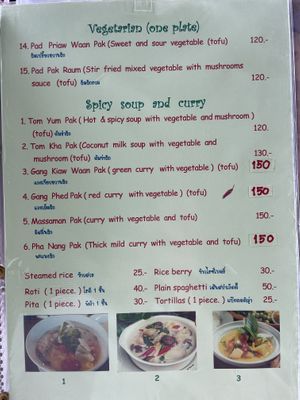 Vegetarian (one plate)
14. Pad Priaw Waan Pak (Sweet and sour vegetable (tofu) 120.-
ผัดเปรี้ยวหวานผัก
15. Pad Pak Raum (Stir fried mixed vegetable with mushrooms
sauce (tofu) ผัดผักรวม 120.-
Spicy soup and curry
1. Tom Yum Pak ( Hot & spicy soup with vegetable and mushroom )
(tofu) ต้มยำผัก 120.
2. Tom Kha Pak (Coconut milk soup with vegetable and
mushroom (tofu) ต้มข่าผัก 130.-
3. Gang Kiaw Waan Pak ( green curry with vegetable ) (tofu) 150
แกงเขียวหวานผัก
4. Gang Phed Pak ( red curry with vegetable ) (tofu) 150
แกงเผ็ดผัก
5. Massaman Pak (curry with vegetable and tofu) 150.-
6. Pha Nang Pak (Thick mild curry with vegetable and tofu) 150
Steamed rice ข้าวสวย 25.- Rice berry ข้าวไรซ์เบอร์รี่ 30.-
Roti ( 1 piece. ) โรตี 1 ชิ้น 40.- Plain spaghetti 50.-
Pita ( 1 piece. ) พิต้า 1 ชิ้น 30.- Tortillas ( 1 piece. ) 25.-
1 2 3